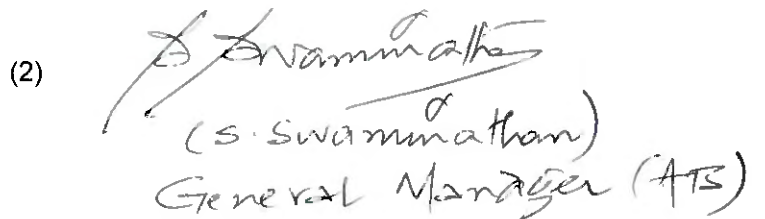 (2) S Swaminathan
(S. Swaminathan)
General Manager (ATS)